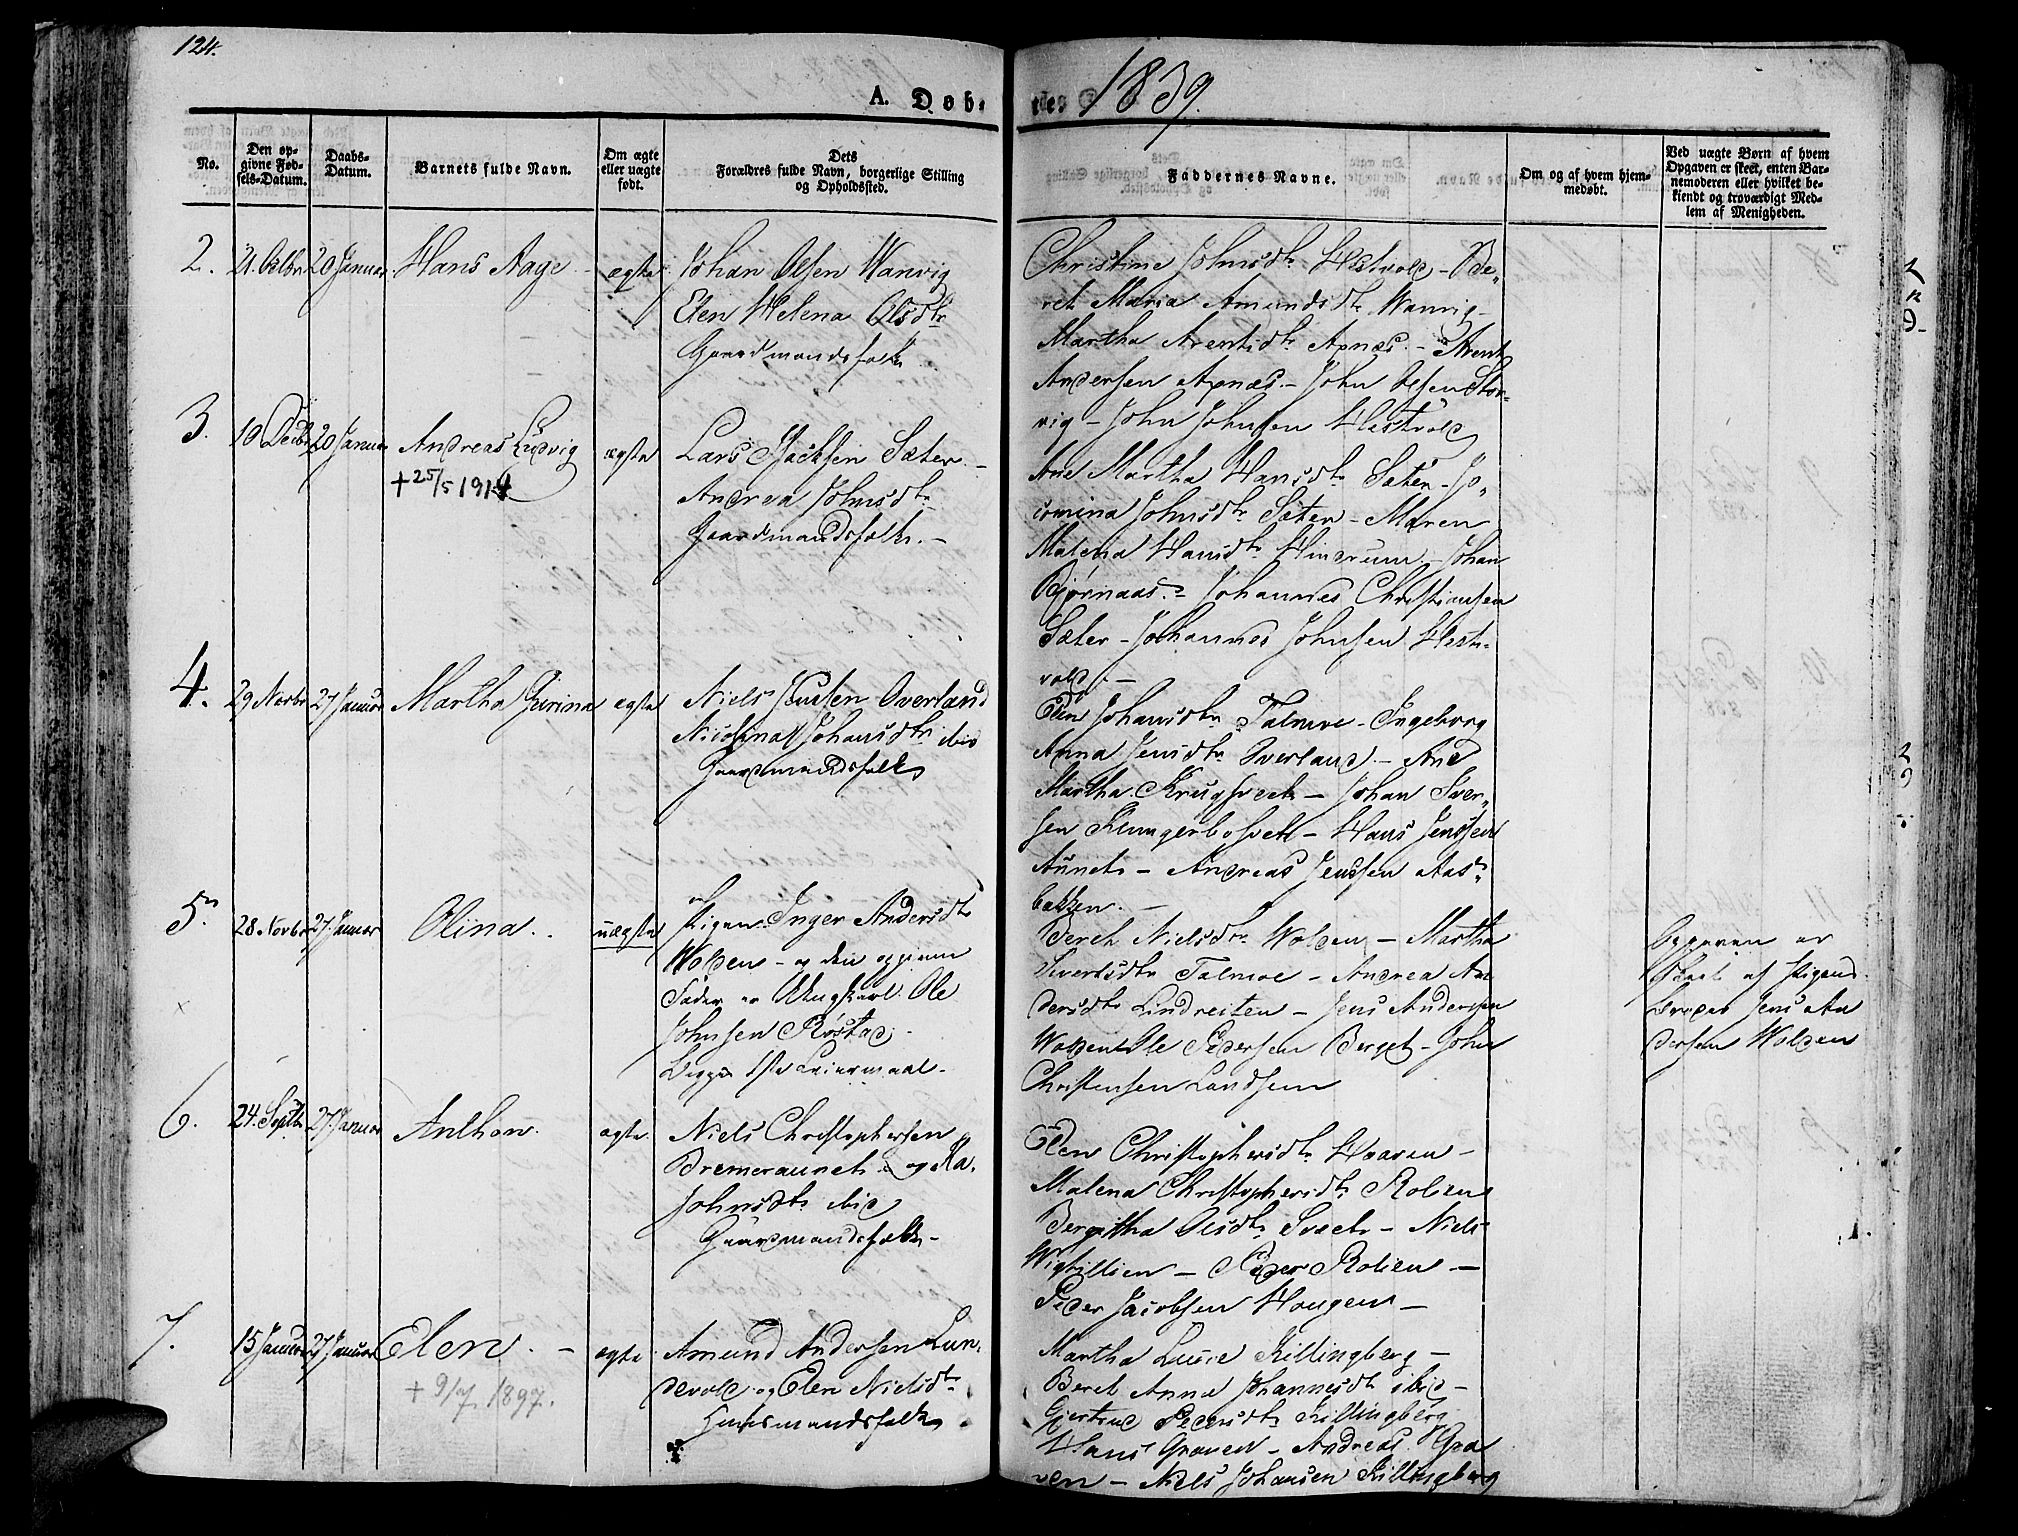 124.
1839.
A. Døb- te
No.
Den op-
givne Fød-
sels-Datum.
Daabs-
Datum.
Barnets fulde Navn.
Om ægte
eller uægte
født.
Dets
Forældres fulde Navn, borgerlige Stilling
og Opholdssted.
Faddernes Navne.
Om og af hvem hjem-
medøbt.
Ved uægte Børn af hvem
Opgaven er skeet, enten Bar-
nemoderen eller hvilket be-
kiendt og troværdigt Med-
lem af Menigheden.
2. 21. Octbr 20 Januar Hans Aage ægte
Johan Olsen Wanvig
Elen Helena Olsdtr
Gaardmandsfolk
Christine Johnsdtr Hestvold - Be-
ret Maria Amundsdtr Wanvig -
Martha Arentsdtr Apnæs - Arent
Andersen Apnæs - John Olsen Stor-
vig - John Johnsen Hestvold
3. 10 Decbr 20 Januar Andreas Ludvig ægte
+ 25/5 1914
Lars Jsacksen Sæter -
Andrea Johnsdtr
Gaardmandsfolk. -
Ane Martha Hansdtr Sæter - Jo-
comina Johnsdtr Sæter - Maren
Malena Hansdtr Hindrum - Johan
Bjørnaas - Johannes Christiansen
Sæter - Johannes Johnsen Hest-
vold. -
4. 29 Novbr 27 Januar Martha Gurina ægte
Niels Jensen Overland
Nicolina Johansdtr ibid
Gaardmandsfolk
Elen Johansdtr Talmoe - Ingeborg
Anna Jensdtr Overland - Ane
Martha Krugsvedt - Johan Iver-
sen Klungerbosvedt - Hans Jenssen
Aunet - Andreas Jenssen Aas-
bakken. -
5. 28 Novbr 27 Januar Olina. uægte
Pigen Inger Andersdtr
Wolden - og den opgivne
Fader er Ungkarl Ole
Johnsen Røstad -
Begges 1ste Leiermaal -
Beret Nielsdtr Wolden - Martha
Sivertsdtr Talmoe - Andrea An-
dersdtr Lindreiten - Jens Andersen
Wolden Ole Pedersen Berget - John
Christensen Landsem
Opgaven er
skeet af Pigens
Broder Jens An
dersen Wolden
6. 24. Septbr 27 Januar Anthon. ægte
Niels Christophersen
Bremeraunet og Ma.
Johnsdtr ibid
Gaardmandsfolk -
Elen Christophersdtr Haaven -
Malena Christophersdtr Rolien
Bergitha Olsdtr Svedt - Niels
Wigtillien - Peder Rolien -
Peder Jacobsen Hougen -
7. 15 Januar 27 Januar Elen - ægte
+ 9/7 1897.
Amund Andersen Lun-
devold og Elen Nielsdtr
Huusmandsfolk
Martha Lucie Killingberg -
Beret Anna Johannesdtr ibid -
Gjertrud Pedersdtr Killingberg
Hans Graven - Andreas Gra
ven - Niels Johansen Killingberg